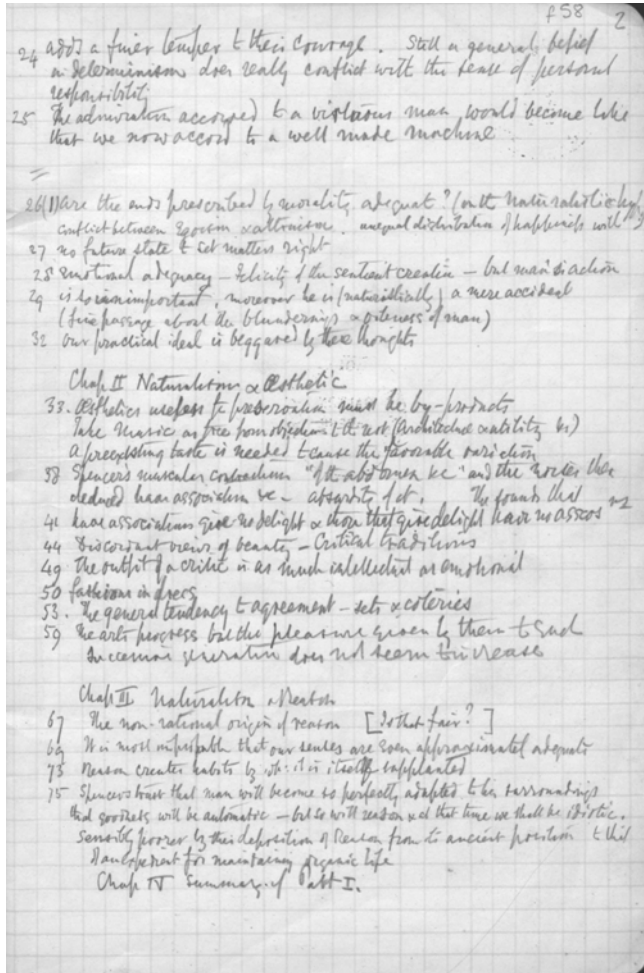 f58 2
24 adds a finer temper to their courage. Still a general belief
in determinism does really conflict with the sense of personal
responsibility
25 The admiration accorded to a virtuous man would become like
that we now accord to a well made machine
=
26 (1) are the ends prescribed by morality adequate? (on the Naturalistic hyp)
conflict between Egoism & altruism. unequal distribution of happiness with
27 no future state to set matters right
28 emotional adequacy - felicity of the sentient creation - but man's action
29 is so unimportant, moreover he is (naturalistically) a mere accident
(fine passage about the blunderings & of man)
32 our practical ideal is beggared by these thoughts
Chap II Naturalism & Æsthetic
33. Æsthetics useless to preservation must be by-products
Take Music as free from objection to the rest (Architecture & utility &c)
a preexisting taste is needed to cause the favorable variation
38 Spencer's muscular contractions "of the abdomen &c" and the noises then
deduced have association &c - absurdity of it. The sounds that
41 have associations give no delight & those that give delight have no assocns
44 Discordant views of beauty - Critical traditions
49 the outfit of a critic is as much intellectual as emotional
50 fashions in dress
53. The general tendency to agreement - sets & coteries
59 The arts progress but the pleasure given by them to each
successive generation does not seem to increase
Chap III Naturalism & Reason
67 The non-rational origin of reason [Is that fair?]
69 It is most improbable that our senses are even approximately adequate
73 Reason creates habits by wh: it is itself supplanted
75 Spencer's trust that man will become so perfectly adapted to his surroundings
that goodness will be automatic - but so will reason & at that time we shall be idiotic.
sensibly poorer by this deposition of Reason from its ancient position to that
of an expedient for maintaining organic life
Chap IV Summary of Part I.